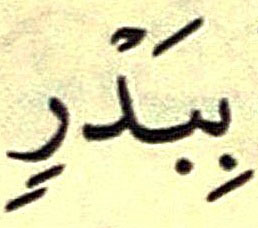 بِبَدْرٍ